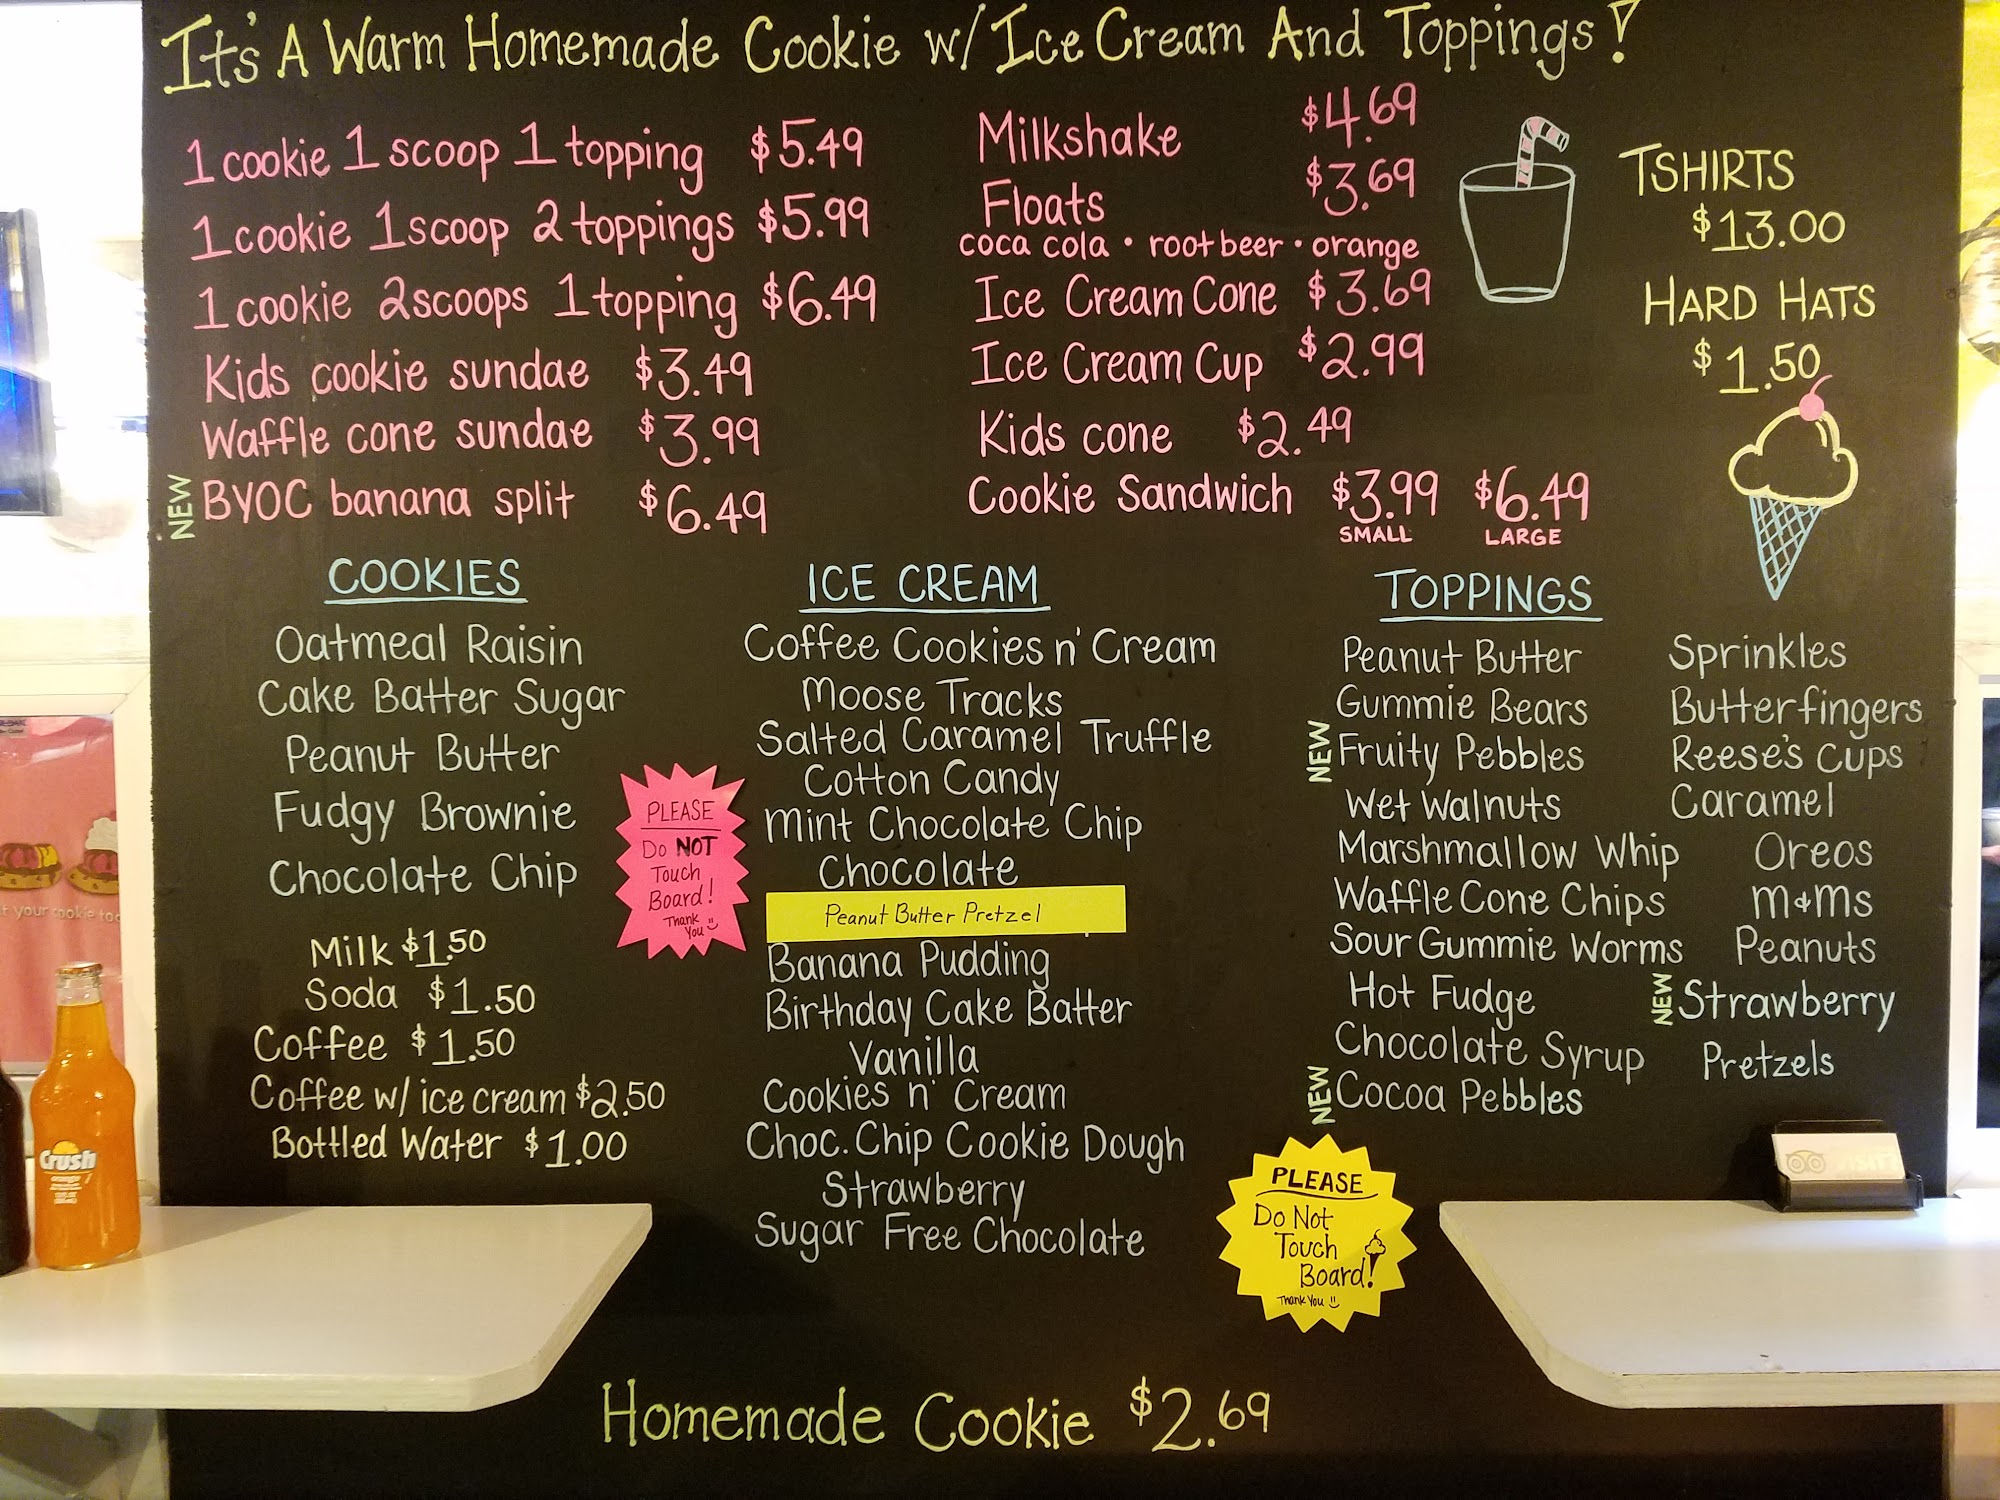 It's A Warm Homemade Cookie w/ Ice Cream And Toppings!
1 cookie 1 scoop 1 topping $5.49
1 cookie 1 scoop 2 toppings $5.99
1 cookie 2 scoops 1 topping $6.49
Kids cookie sundae $3.49
Waffle cone sundae $3.99
NEW BYOC banana split $6.49
Milkshake $4.69
Floats $3.69
coca cola • root beer • orange
Ice Cream Cone $3.69
Ice Cream Cup $2.99
Kids cone $2.49
Cookie Sandwich $3.99 $6.49
SMALL LARGE
TSHIRTS
$13.00
HARD HATS
$1.50
COOKIES
Oatmeal Raisin
Cake Batter Sugar
Peanut Butter
Fudgy Brownie
Chocolate Chip
Milk $1.50
Soda $1.50
Coffee $1.50
Coffee w/ ice cream $2.50
Bottled Water $1.00
PLEASE
Do NOT
Touch
Board!
Thank
You
ICE CREAM
Coffee Cookies n' Cream
Moose Tracks
Salted Caramel Truffle
Cotton Candy
Mint Chocolate Chip
Chocolate
Peanut Butter Pretzel
Banana Pudding
Birthday Cake Batter
Vanilla
Cookies n' Cream
Choc. Chip Cookie Dough
Strawberry
Sugar Free Chocolate
TOPPINGS
Peanut Butter
Gummie Bears
NEW Fruity Pebbles
Wet Walnuts
Marshmallow Whip
Waffle Cone Chips
Sour Gummie Worms
Hot Fudge
Chocolate Syrup
NEW Cocoa Pebbles
Sprinkles
Butterfingers
Reese's Cups
Caramel
Oreos
M&Ms
Peanuts
NEW Strawberry
Pretzels
PLEASE
Do Not
Touch
Board!
Thank You
Homemade Cookie $2.69
Crush
orange
your cookie to
VISIT